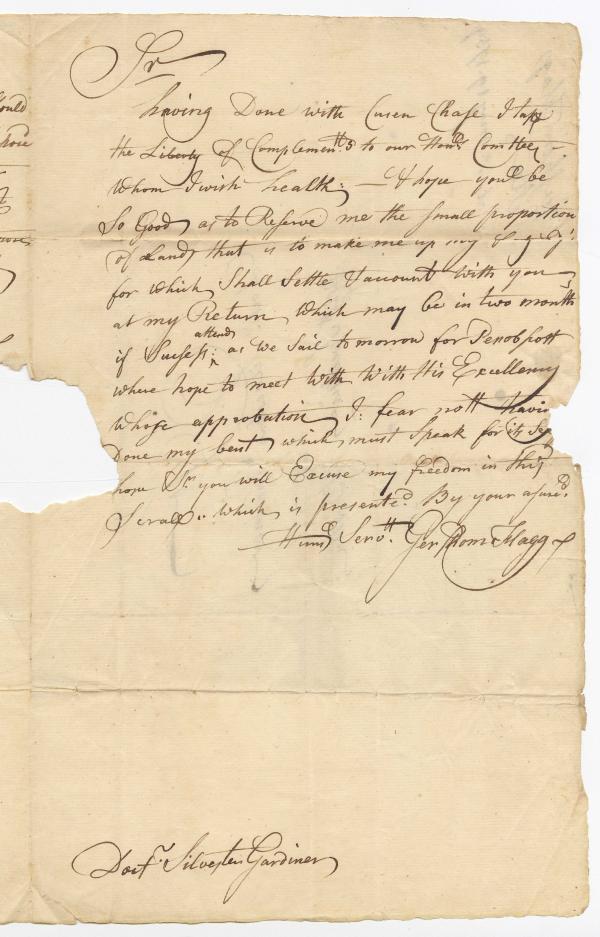 ould
Sr
having Done with Cusen Chase I tak
the Liberty of Complements to our Honrd Comttee –
Whom I wish health; – & hope youl be
So Good as to Reserve me the small proportion
of Land that is to make me up my
for which Shall Settle & account with you
at my Return, which may be in two months
if Sucsess: attend as we Sail to morrow for Penobscott
where hope to meet with With His Excellency
Whose approbation I: fear nott havin
Done my best, which must Speak for its Se
hope Sr. you will Excuse my freedom in this
Scrall.. which is presented By your asured
Humb Servtt Gershom Flagg
Doctr. Silvester Gardiner